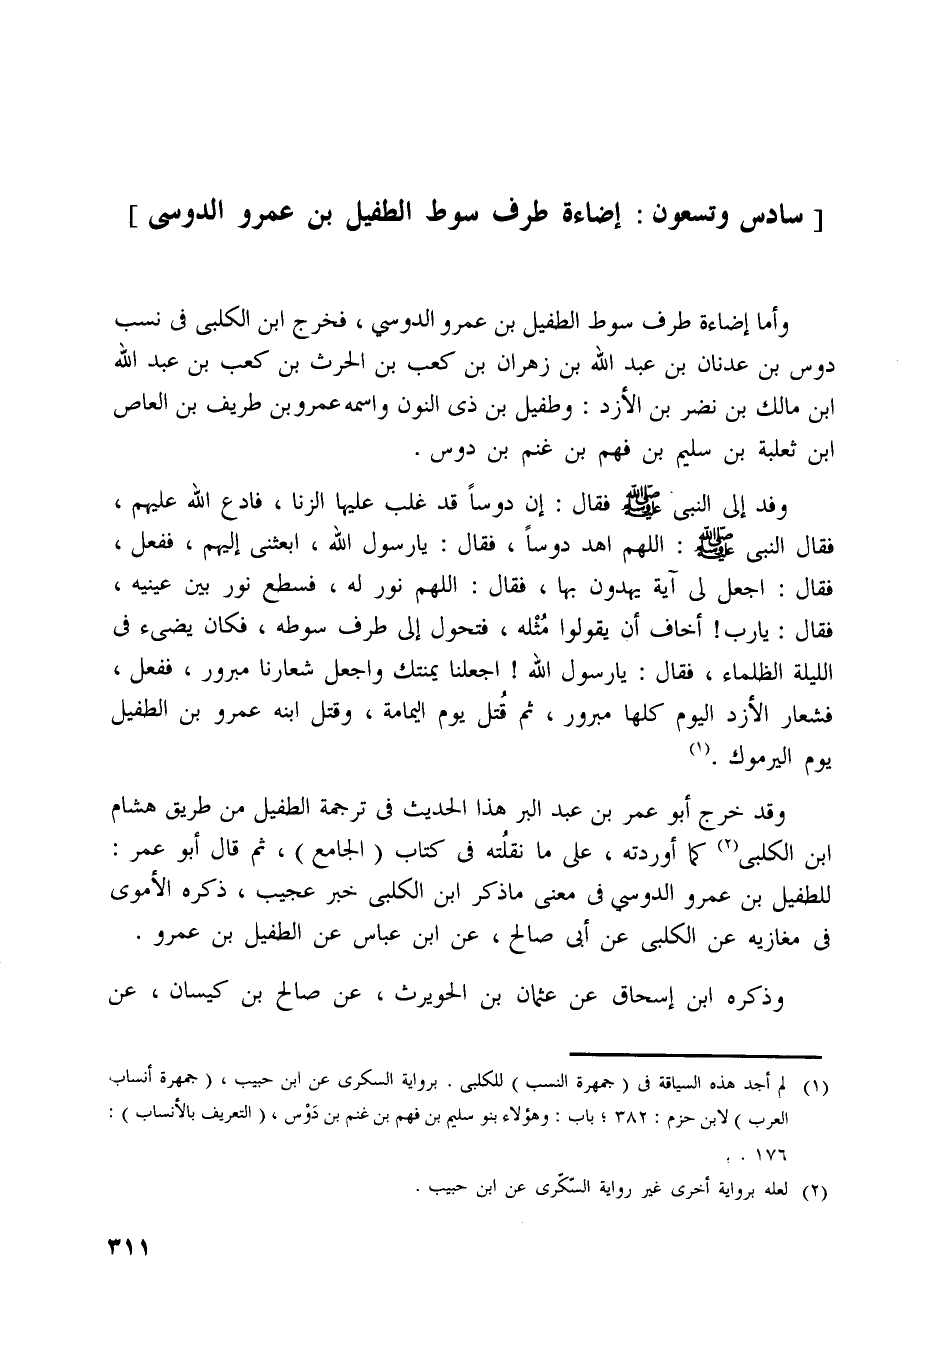 [ سادس وتسعون : إضاءة طرف سوط الطفيل بن عمرو الدوسى ]
وأما إضاءة طرف سوط الطفيل بن عمرو الدوسي ، فخرج ابن الكلبى فى نسب
دوس بن عدنان بن عبد الله بن زهران بن كعب بن الحرث بن كعب بن عبد الله
ابن مالك بن نضر بن الأزد : وطفيل بن ذى النون واسمه عمرو بن طريف بن العاص
ابن ثعلبة بن سليم بن فهم بن غنم بن دوس .
وفد إلى النبى ﷺ فقال : إن دوساً قد غلب عليها الزنا ، فادع الله عليهم ،
فقال النبى ﷺ : اللهم اهد دوساً ، فقال : يارسول الله ، ابعثنى إليهم ، ففعل ،
فقال : اجعل لى آية يهدون بها ، فقال : اللهم نور له ، فسطع نور بين عينيه ،
فقال : يارب! أخاف أن يقولوا مُثْله ، فتحول إلى طرف سوطه ، فكان يضىء فى
الليلة الظلماء ، فقال : يارسول الله ! اجعلنا يمنتك واجعل شعارنا مبرور ، ففعل ،
فشعار الأزد اليوم كلها مبرور ، ثم قُتل يوم اليمامة ، وقتل ابنه عمرو بن الطفيل
يوم اليرموك .(١)
وقد خرج أبو عمر بن عبد البر هذا الحديث فى ترجمة الطفيل من طريق هشام
ابن الكلبى(٢) كما أوردته ، على ما نقلُته فى كتاب ( الجامع ) ، ثم قال أبو عمر :
للطفيل بن عمرو الدوسي فى معنى ماذكر ابن الكلبى خبر عجيب ، ذكره الأموى
فى مغازيه عن الكلبى عن أبى صالح ، عن ابن عباس عن الطفيل بن عمرو .
وذكره ابن إسحاق عن عثمان بن الحويرث ، عن صالح بن كيسان ، عن
(١) لم أجد هذه السياقة فى ( جمهرة النسب ) للكلبى . برواية السكرى عن ابن حبيب ، ( جمهرة أنساب
العرب ) لابن حزم : ٣٨٢ ؛ باب : وهؤلاء بنو سليم بن فهم بن غنم بن دَوْس ، ( التعريف بالأنساب ) :
١٧٦ . .
(٢) لعله برواية أخرى غير رواية السّكّرى عن ابن حبيب .
٣١١